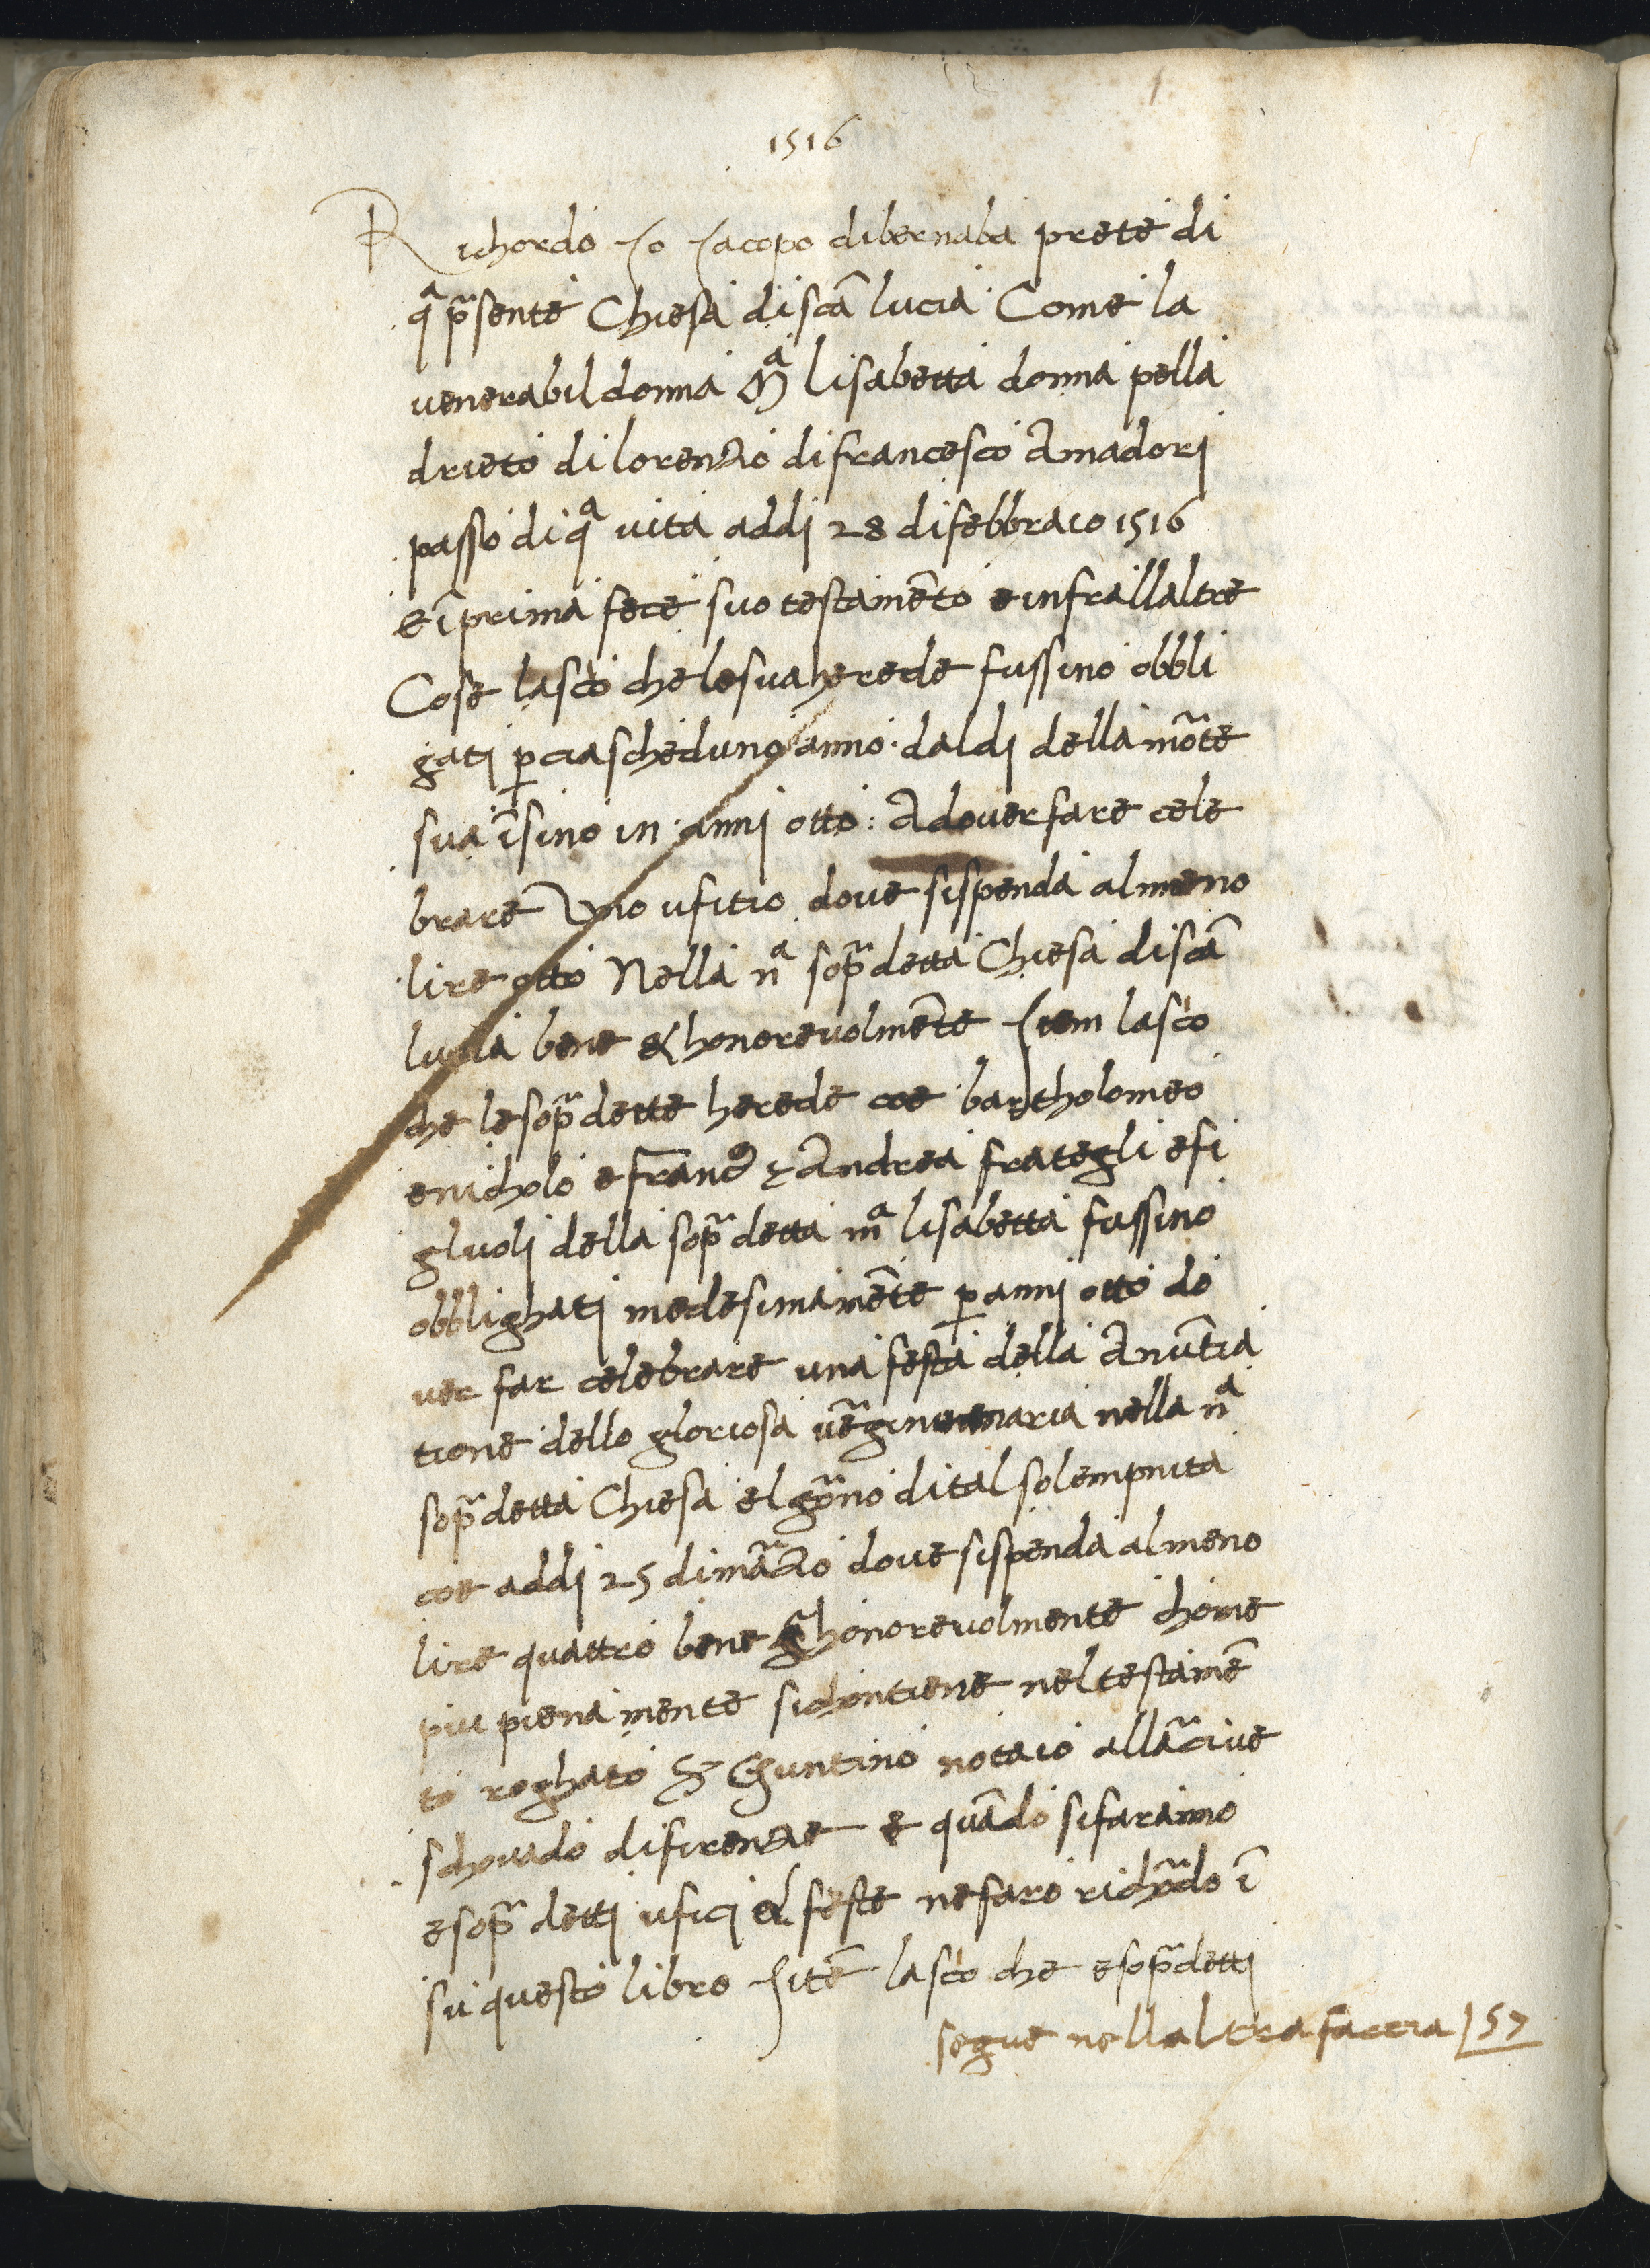 1516
Richordo Io Iacopo dibernaba prete di
qª p̃sente Chiesa di scã lucia Come la
venerabil donna Mª lisabetta donna pella
drieto di lorenzo di francesco Amadori
passo di qª vita addi 28 di febbraio 1516
e ĩprima fece suo testamẽto e infrallaltre
Cose lascio che le sua herede fussino obbli
gati ꝑ ciascheduno anno · dal di della mo͂te
sua ĩsino in · anni otto : Adover fare cele
brare Uno ufitio dove si spenda almeno
lire otto Nella nª sop̃detta Chiesa di scã
lucia bene & honorevolmẽte Item lascio
che le sop̃dette herede cioe bartholomeo
e nicholo e franco & Andrea frategli e fi
gluoli della sop̃detta mª lisabetta fussino
obblighati medesimamẽte ꝑ anni otto do
ver far celebrare una festa della Anũtia
tione dello gloriosa ṽgine maria nella nª
sop̃detta Chiesa el gio͂no di tal solempnita
cioe addi 25 di ma͂zo dove si spenda almeno
lire quattro bene & honorevolmente chome
piu pienamente si chontiene nel testamẽ
to roghato S Ghuntino notaio alla͂cive
schovado di firenze e quãdo si faranno
e sop̃detti ufici & feste ne faro richo͂do ĩ
su questo libro Itẽ lascio che e sop̃detti
segue nellaltra faccia 157